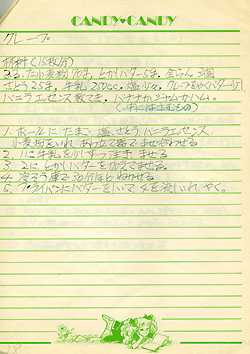 CANDY♥CANDY
クレープ
材料(15枚分)
ふるった小麦粉70g、とかしバター5g、全らん3個
さとう25g、牛乳200cc、塩少々、クレープをやくバター少し
バニラエッセンス数てき、バナナかジャムかハム。
(中にはさむもの)
1.ボールにたまご、塩、さとう、バニラエッセンス、
小麦粉をいれ、あわ立て器でまぜ合わせる
2.1に牛乳を少しずつ注ぎ、まぜる
3.2にとかしバターを加えてまぜる。
4.冷ぞう庫で30分ほどねかせる
5.フライパンにバターをしいて、4を流しいれ、やく。